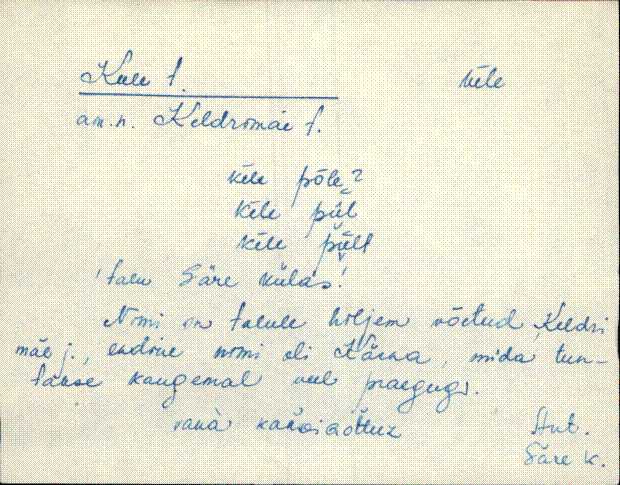 Kele t. kele
a.m.n. Keldromäe t.
kele põle?
kele pül
kele pült
'talu Säre külas!
Nimi on talule hiljem võetud Keldri
mäe j., endine nimi oli Kärna, mida tun-
takse kaugemal veel praegugi.
vana
Ant.
Säre k.